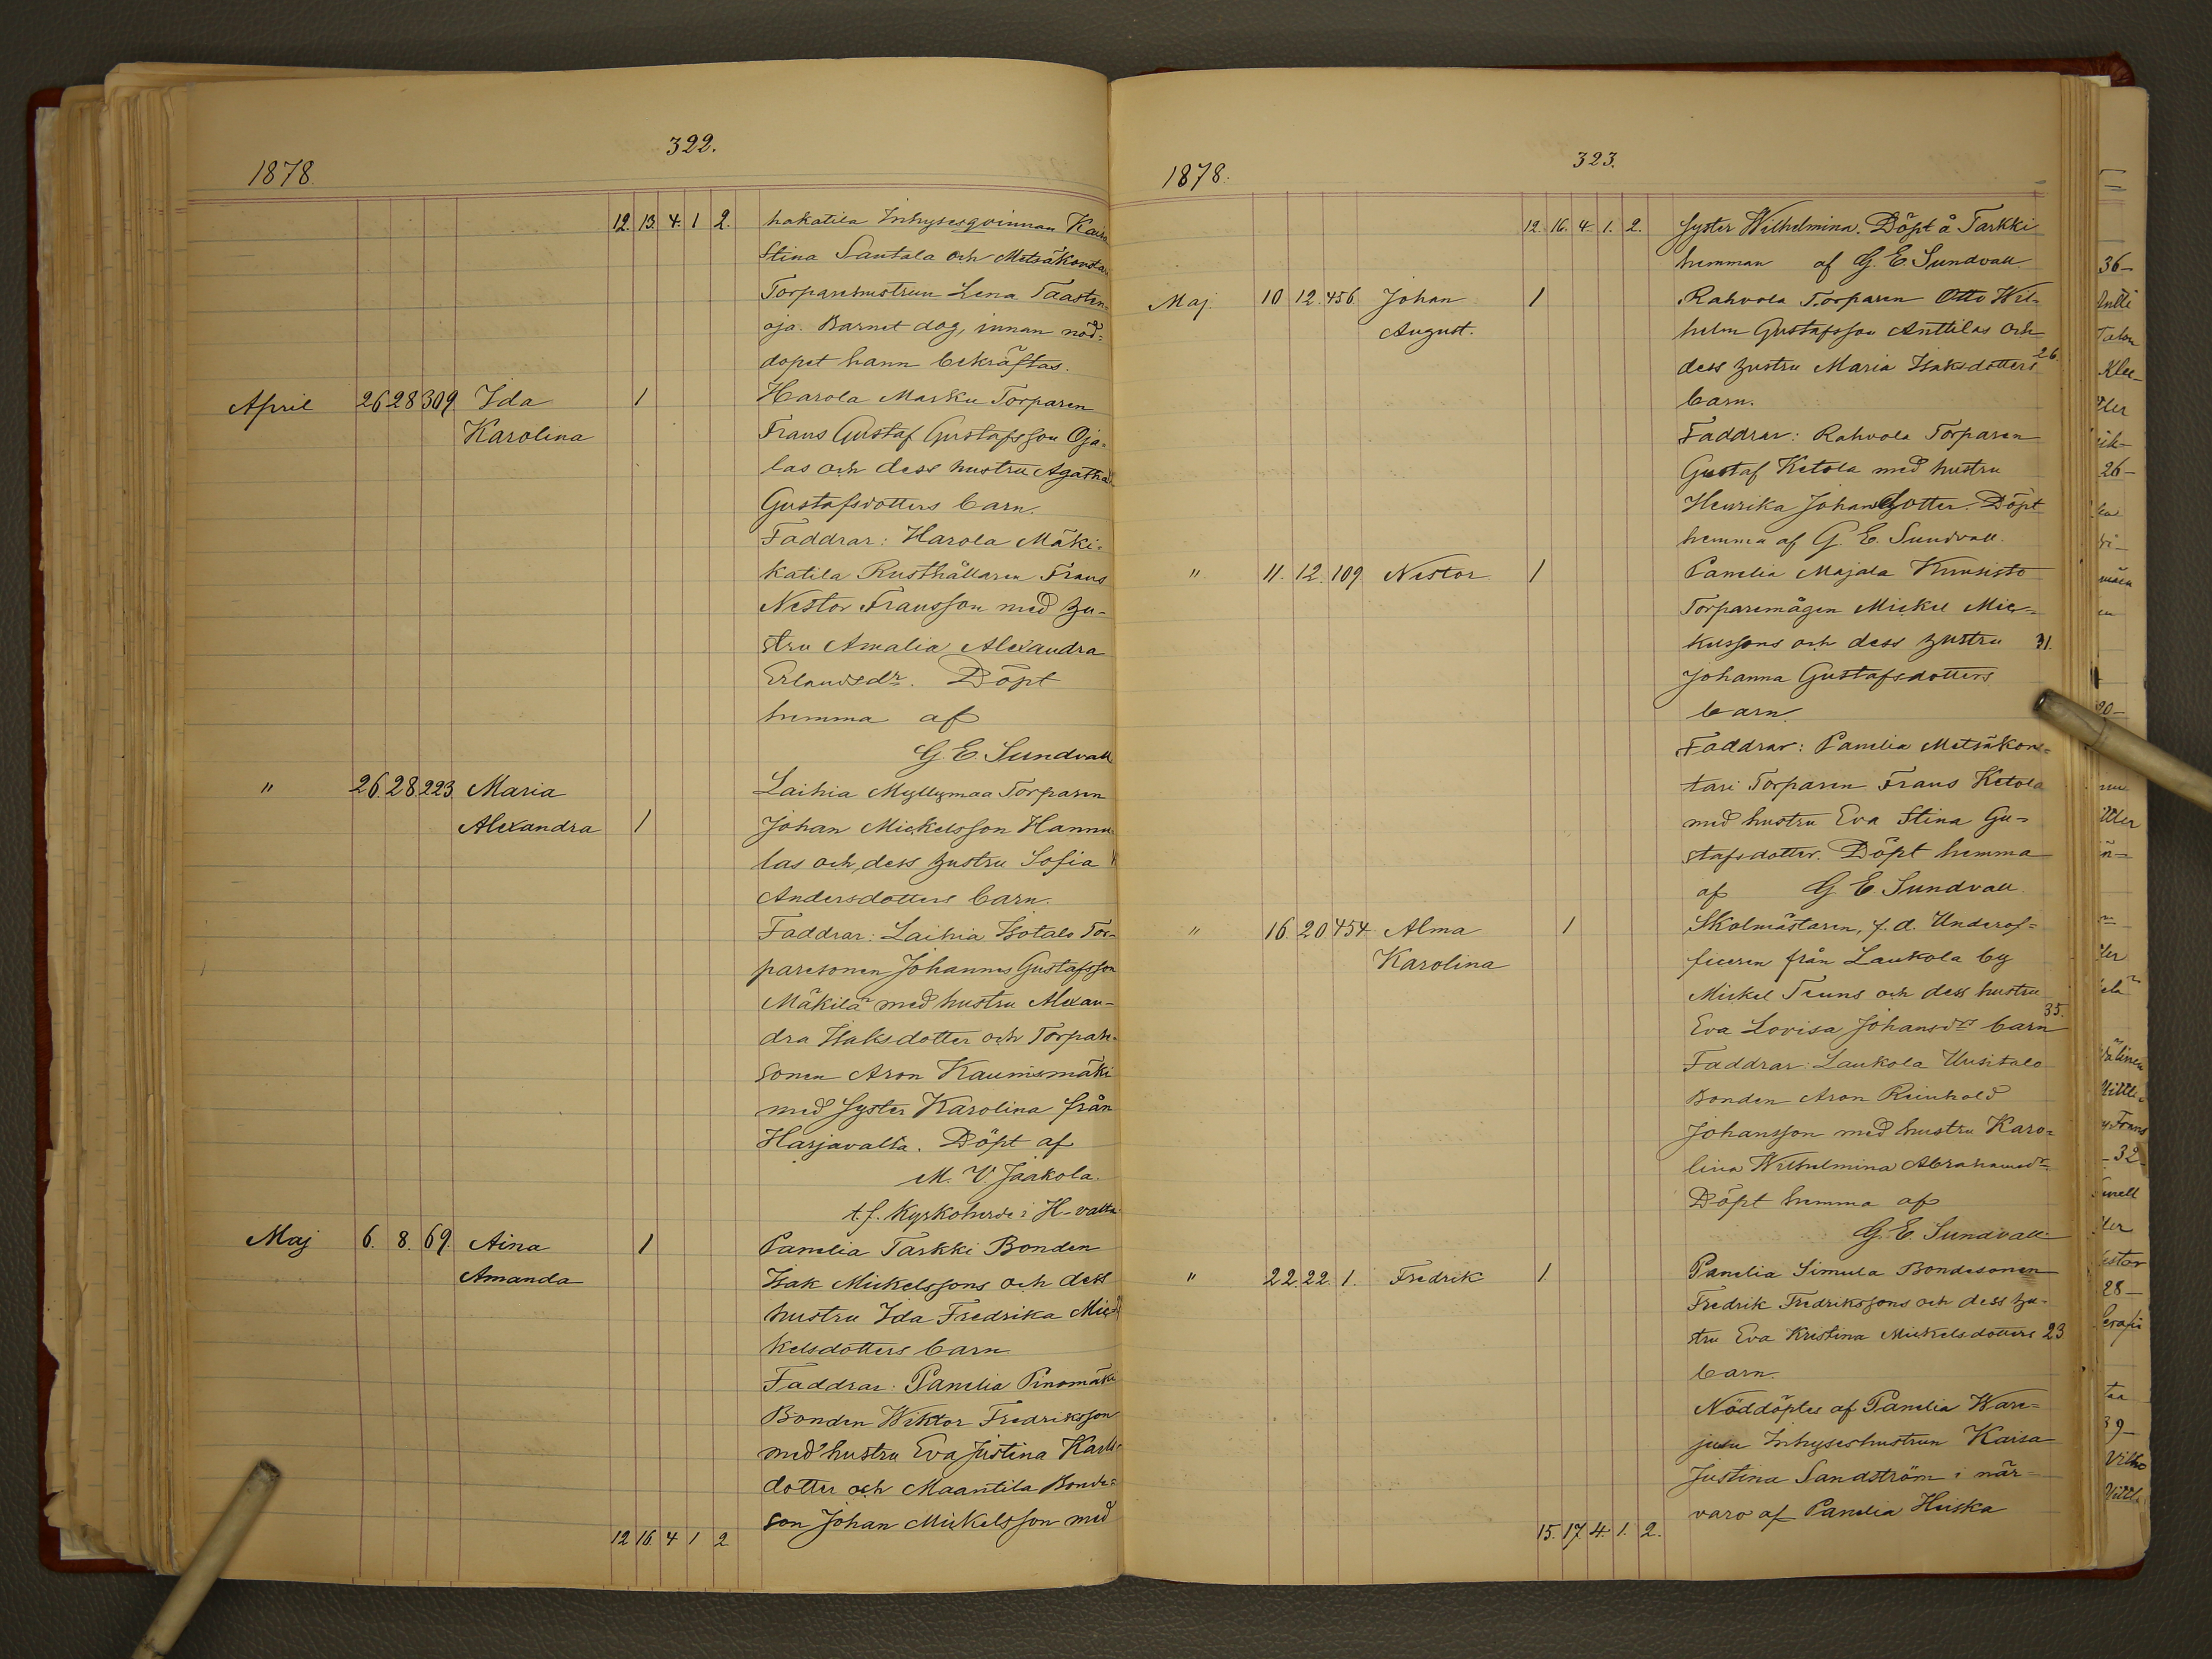 322.
1878.
12. 13. 4. 1 2. hakatila Inhysesqvinnan Kaisa
Stina Santala och Metsäkonstari
Torparehustrun Lena Taasten=
oja. Barnet dog, innan nöd=
dopet hann bekräftas.
April 26 28 309 Ida 1 Harola Marku Torparen
Karolina Frans Gustaf Gustafsson Oja=
las och dess hustru Agatha
Gustafsdotters barn.
Faddrar: Harola Mäki=
katila Rusthållaren Frans
Nestor Fransson med hu-
stru Amalia Alexandra
Erlandsdr. Döpt
hemma af
G. E. Sundvall
" 26. 28. 223. Maria Laihia Myllymaa Torparen
Alexandra 1 Johan Mickelsson Hannu
las och dess hustru Sofia
Andersdotters barn.
Faddrar: Laihia Isotalo Tor-
paresonen Johannes Gustafsson
Mäkilä med hustru Alexan-
dra Isaksdotter och Torpare
sonen Aron Kaunismäki
med syster Karolina från
Harjavalta. Döpt af
M. V. Jaakola.
t.f. Kyrkoherde i H-valta.
Maj 6. 8. 69. Aina 1 Panelia Tarkki Bonden
Amanda Isak Mickelssons och dess
hustru Ida Fredrika Mic
kelsdotters barn
Faddrar: Panelia Pinomäki
Bonden Wiktor Fredriksson
med hustru Eva Justina Karls
dotter och Maantila Bonde=
son Johan Mickelsson med
12 16 4 1 2
323.
1878.
12. 16. 4. 1. 2. syster Wilhelmina. Döpt å Tarkki
hemman af G. E. Sundvall
Maj. 10 12. 456. Johan 1 Rahvola Torparen Otto Wil=
August. helm Gustafsson Anttilas och
dess hustru Maria Isaksdotters 26.
barn.
Faddrar: Rahvola Torparen
Gustaf Ketola med hustru
Henrika Johansdotter. Döpt
hemma af G. E. Sundvall.
" 11. 12. 109 Nestor 1 Panelia Majala Kuusisto
Torparemågen Mickel Mic=
kelssons och dess hustru 31.
Johanna Gustafsdotters
barn.
Faddrar: Panelia Metsäkons=
tari Torparen Frans Ketola
med hustru Eva Stina Gu=
stafsdotter. Döpt hemma
af G. E. Sundvall.
" 16. 20 454 Alma 1 Skolmästaren, f.d. Underof=
Karolina ficeren från Laukola by
Mickel Teuns och dess hustru
Eva Lovisa Johansdrs barn 35.
Faddrar: Laukola Uusitalo
Bonden Aron Reinhold
Johansson med hustru Karo=
lina Wilhelmina Abrahamsdr
Döpt hemma af
G. E. Sundvall
" 22. 22. 1. Fredrik 1 Panelia Simula Bondesonen
Fredrik Fredrikssons och dess hu-
stru Eva Kristina Mickelsdotters 23
barn.
Nöddöptes af Panelia Ware=
jusu Inhyseshustrun Kaisa
Justina Sandström i när=
varo af Panelia Heiska
15. 17. 4. 1. 2.